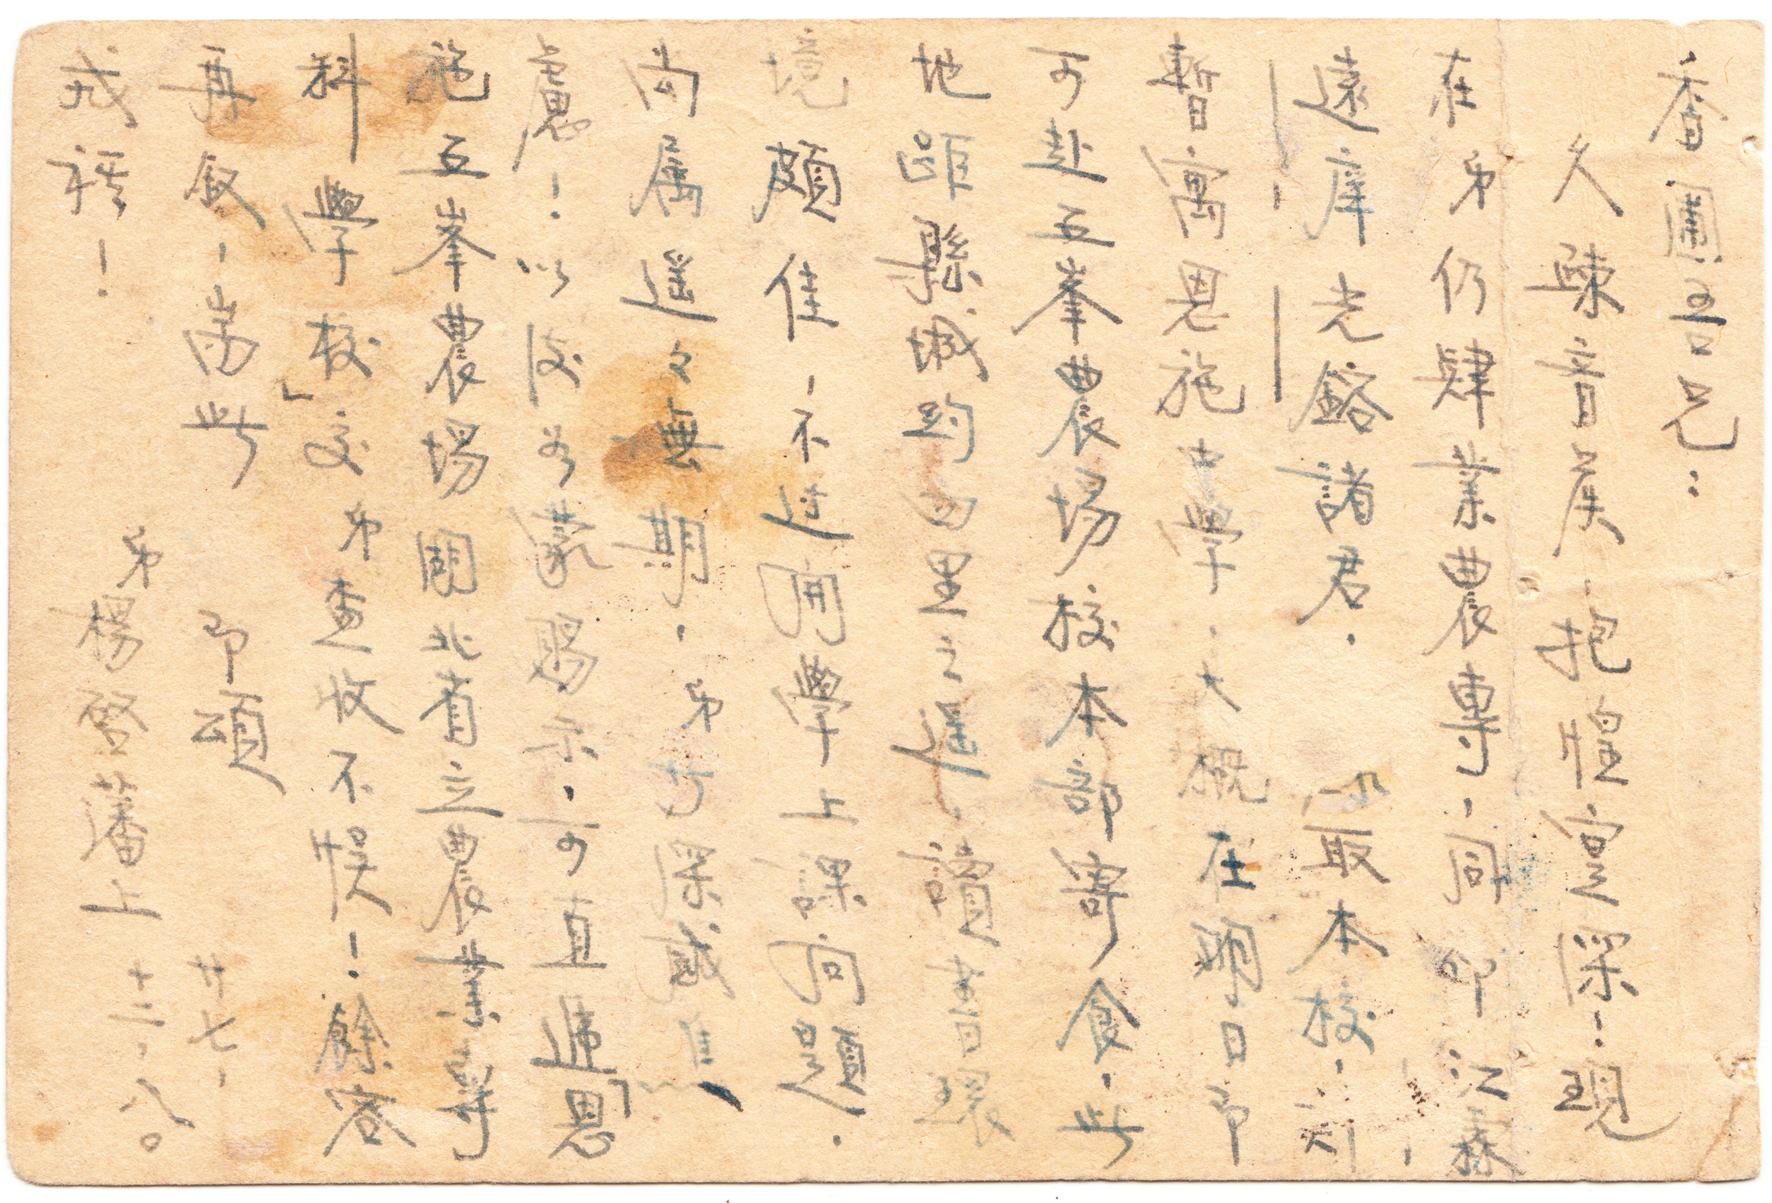 香圃吾兄：
久疎音候，抱愧寔深！現
在弟仍肄業農專，同邱江霖
遠庠 光鎔諸君， 取本校，刻
暫寓恩施中學，大概在明日即
可赴五峯農場校本部寄食，此
地距縣城約四里之遥，讀書環
境頗佳，不過開學上課問題，
尚屬遥々無期，弟甚深感
慮！以後如蒙賜示，可直遞「恩
施五峯農場國北省立農業專
科學校」交弟查收不悞！餘容
再叙，耑此 即頌
戎禧！
弟楊啓藩上 廿七，十二，八。